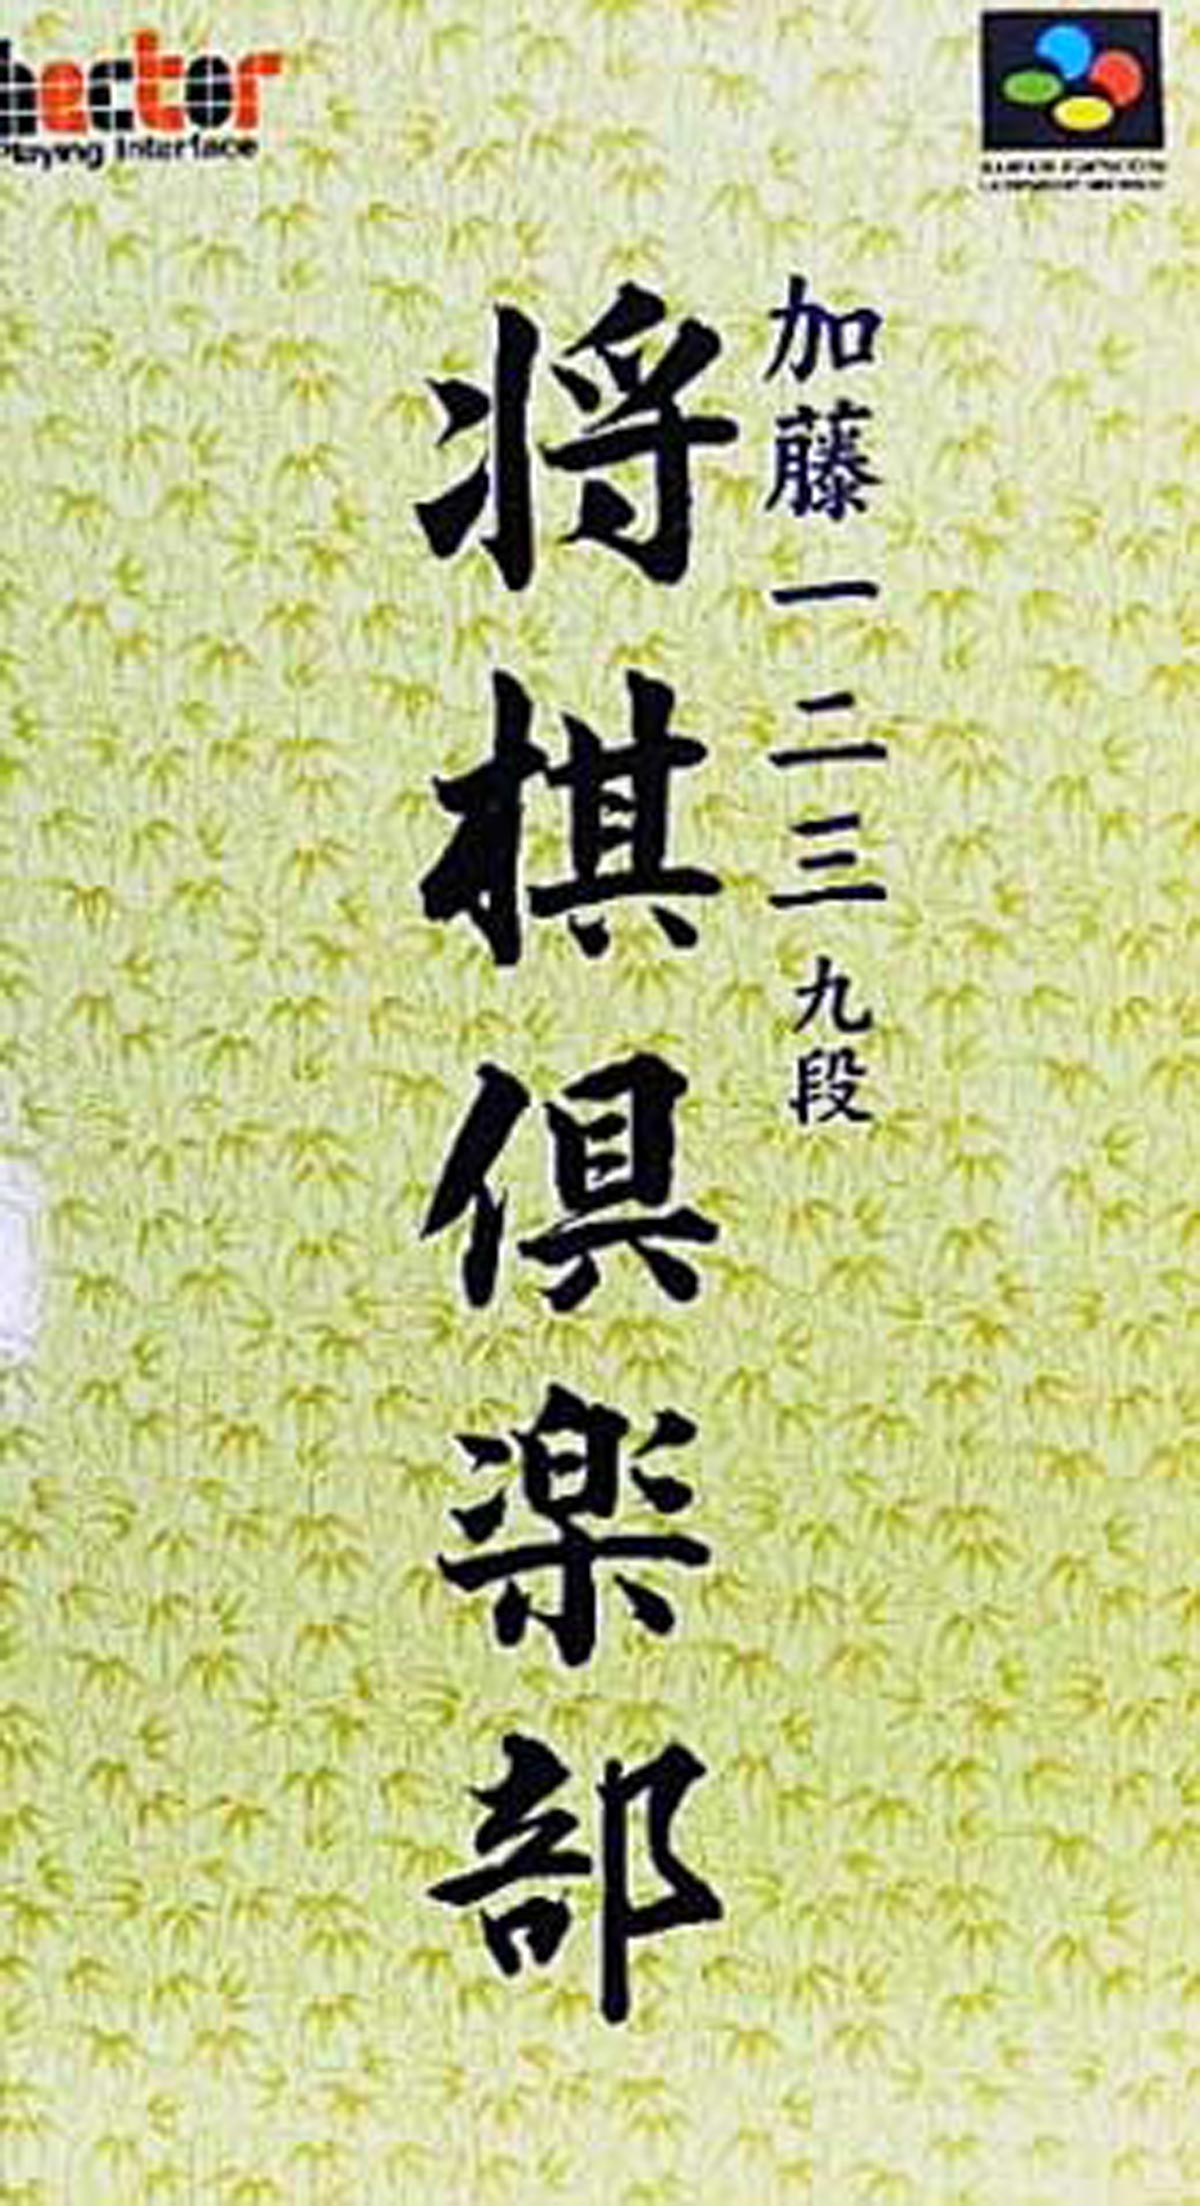 hector
Playing Interface
加藤一二三 九段
将棋倶楽部